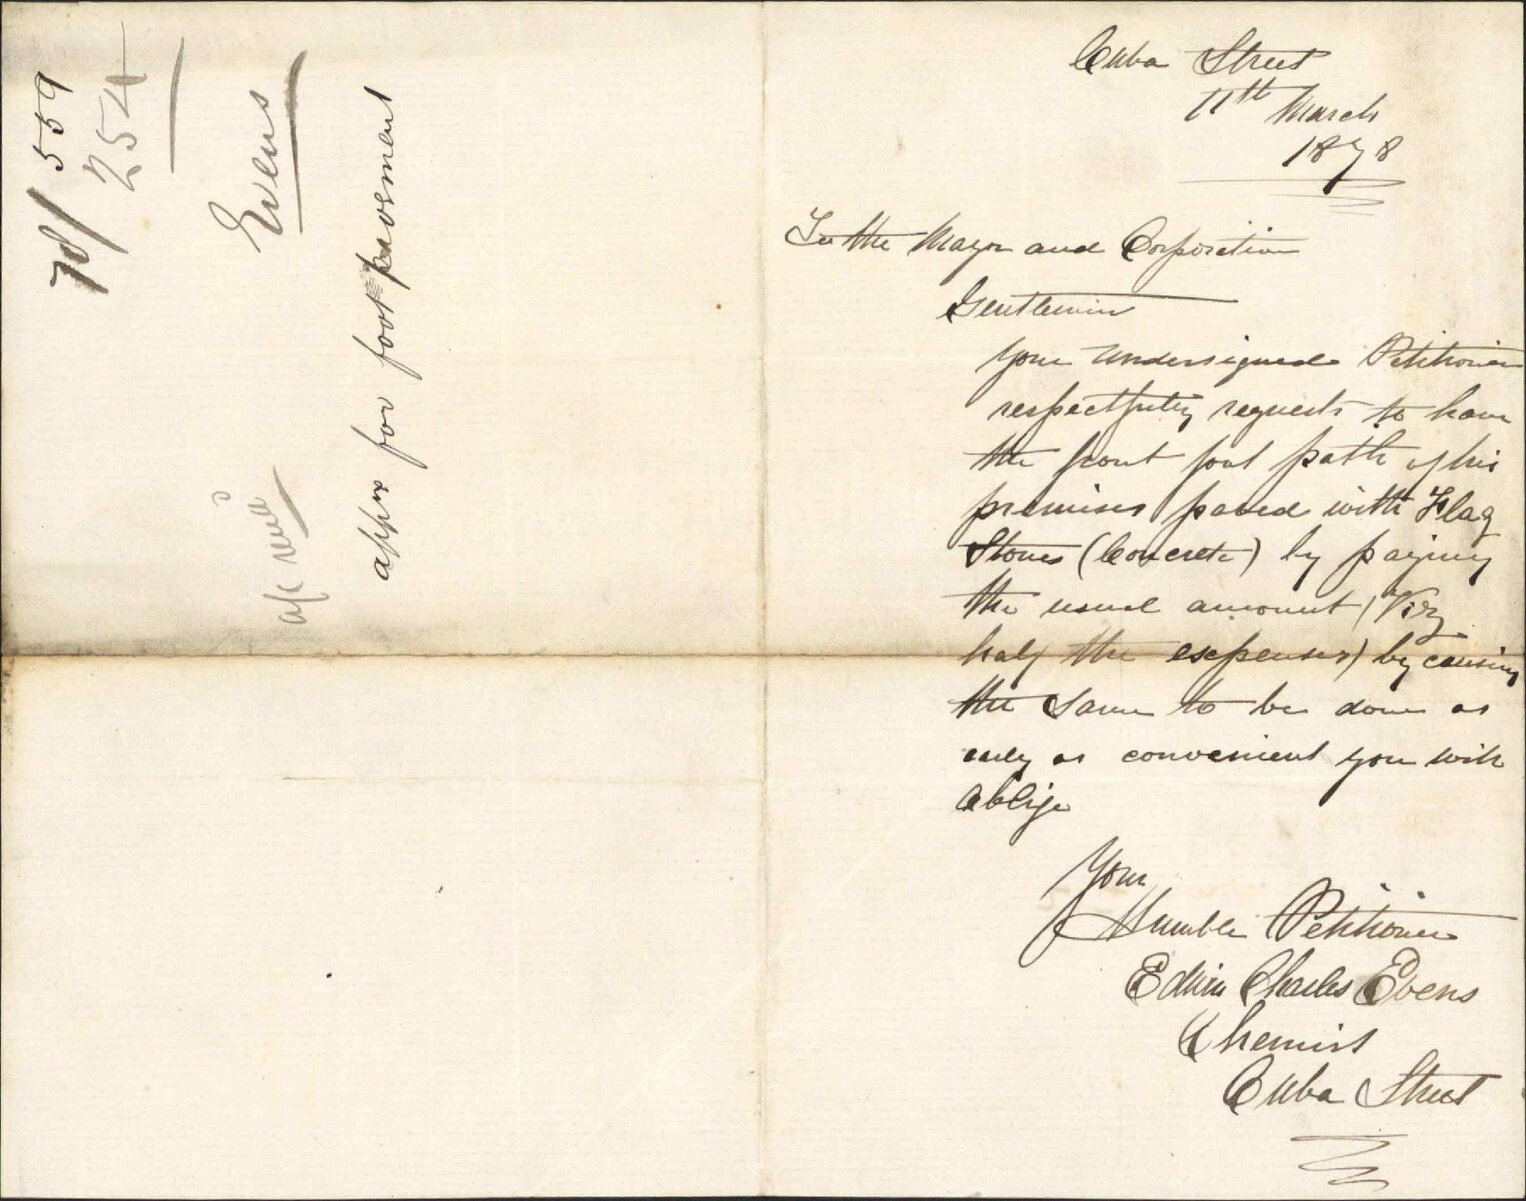 78/559
254
Evens
appn for foot pavement
Cuba Street
11th March
1878
To the Mayor and Corporation
Gentlemen
Your undersigned Petitioner
respectfully requests to have
the front foot path of his
premises paved with Flag
Stones (Concrete) by paying
the usual amount (Viz
half the expenses) by causing
the same to be done as
early as convenient you will
oblige
Your
Humble Petitioner
Edwin Charles Evens
Chemist
Cuba Street